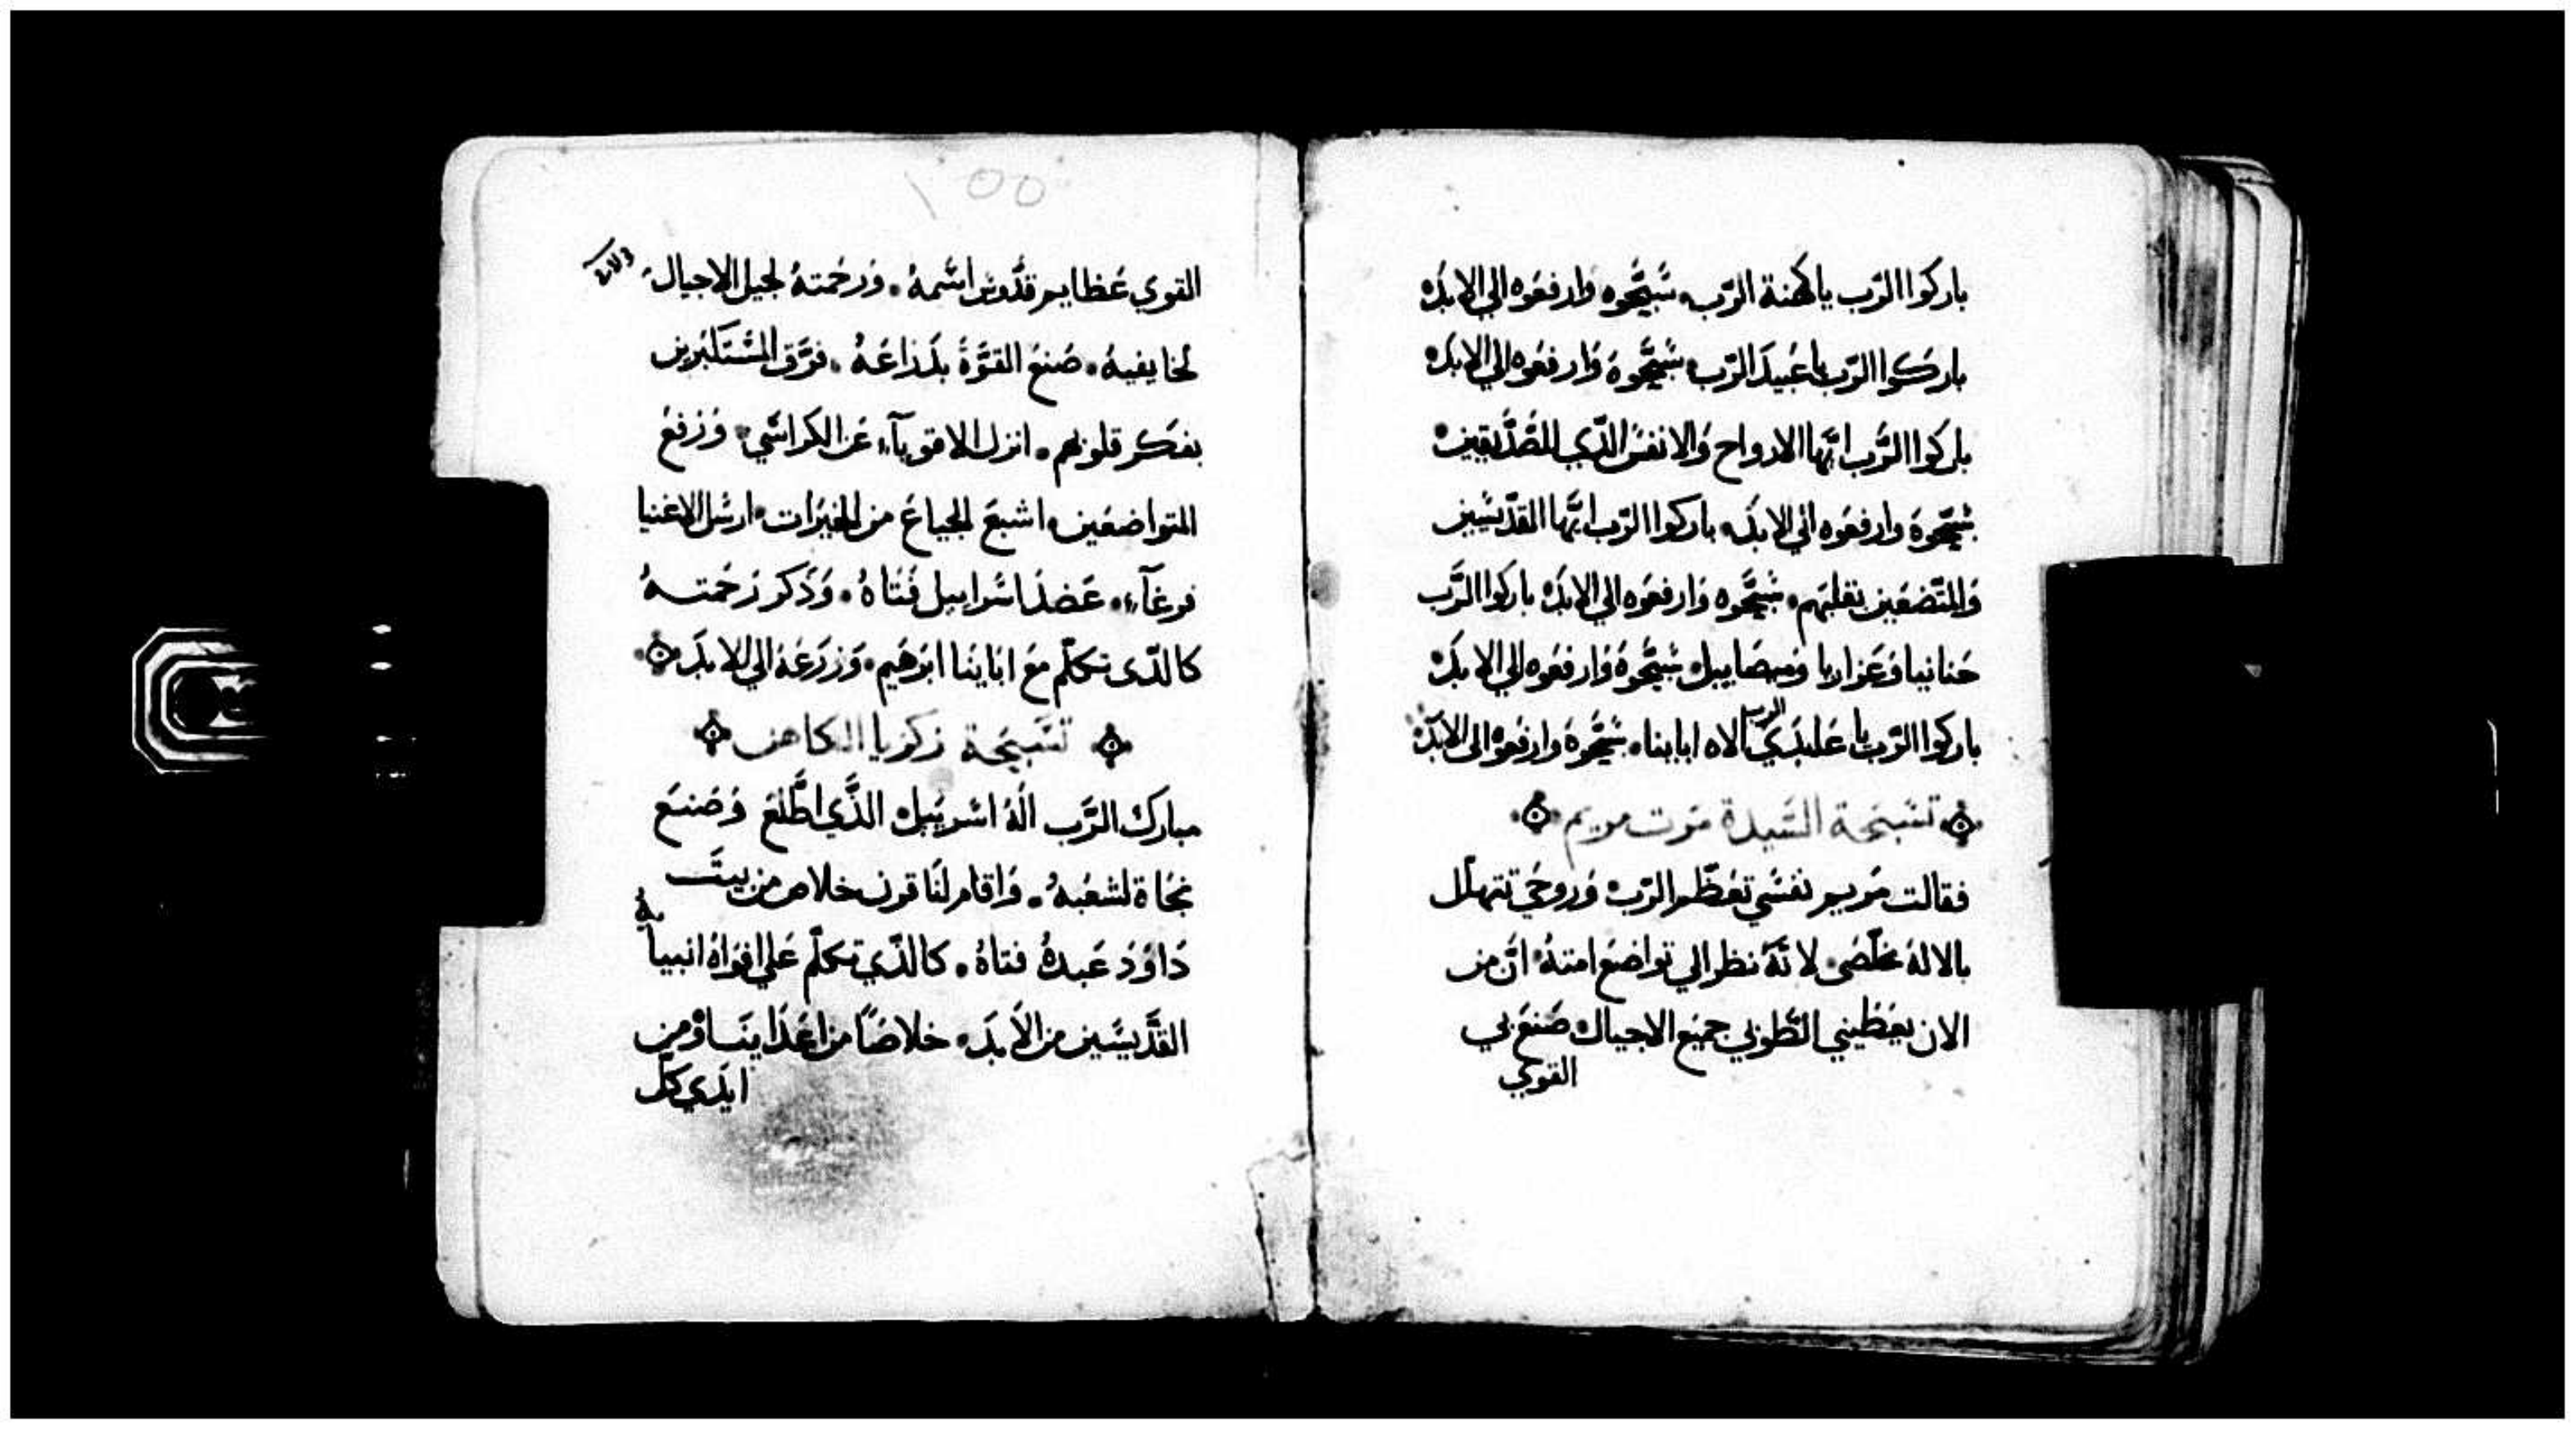 باركوا الرّب ياكهنة الرّب. سَبّحُوه وارفعُوه الي الابدَ.
باركوا الرّب ياعَبيدَ الرّب. سَبّحُوهُ وَارفعُوه الي الابدَ.
باركوا الرَّب ايَّها الارواح وَالانفسُ الذّي للصّدّيقين.
سَبّحوهَ وارفعُوه الي الابدَ. باركوا الرّب ايَّها القدّيسَين
وَالمتّضعَين بقلبَهم. سَبّحُوه وَارفعُوه الي الابدَ. باركوا الرَّب
حَنانيا وَعَزاريا وَميصَاييل. سَبّحُوهُ وَارفعُوه الي الابدَ.
باركوا الرّب يا عَابدَي الرب الاه اباينا. سَبّحُوهُ وارفعُوهُ الى الابدَ.
تسَبحَة السَّيدة مَرت مريم
فقالت مَريم نفسَي تعَظّم الرّب. وَروحَي تتهلّل
بالالهُ مخلّصَى. لانّهَ نظر الي تواضعَ امتهُ. انّ من
الان يعَظيني الطّوبي جميَع الاجيال. صَنعَ بي
القوي
١٥٥
القوي عَظايم قدّوس اسَمهُ. وَرحَمتهُ لجيل الاجيال.
لخايفيهُ. صَنعَ القوَّةَ بذراعَهُ. فرَّق المسَتَكبَرين
بفكر قلوبهم. انزل الاقويآء عَن الكراسَي. وَرَفعَ
المتواضعَين. اشبعَ الجياعَ من الخيرَات. ارسَل الاغنيا
فرغَآء. عَضدَ اسَراييل فَتاهُ. وَذَكر رَحَمتهُ
كالذّى تكلّم مَع ابَاينا ابرَهَيم. وَزرَعَهُ الي الابدَ.
تسَبيحَة زكرَيا الكاهن
مبارك الرَّب الَهُ اسَريَيل الذَّي اطَّلعَ وَصَنعَ
نجَاة لشعَبهُ. وَاقام لنَا قرن خلاص من بيتَ
دَاوَدَ عَبدهُ فتاهُ. كالذّي تكلّم عَلي افوَاهُ انبيايه
القدَّيسَين من الأبدَ. خلاصَاً من اعَدَاينَا وْمن
ايدَي كلّ